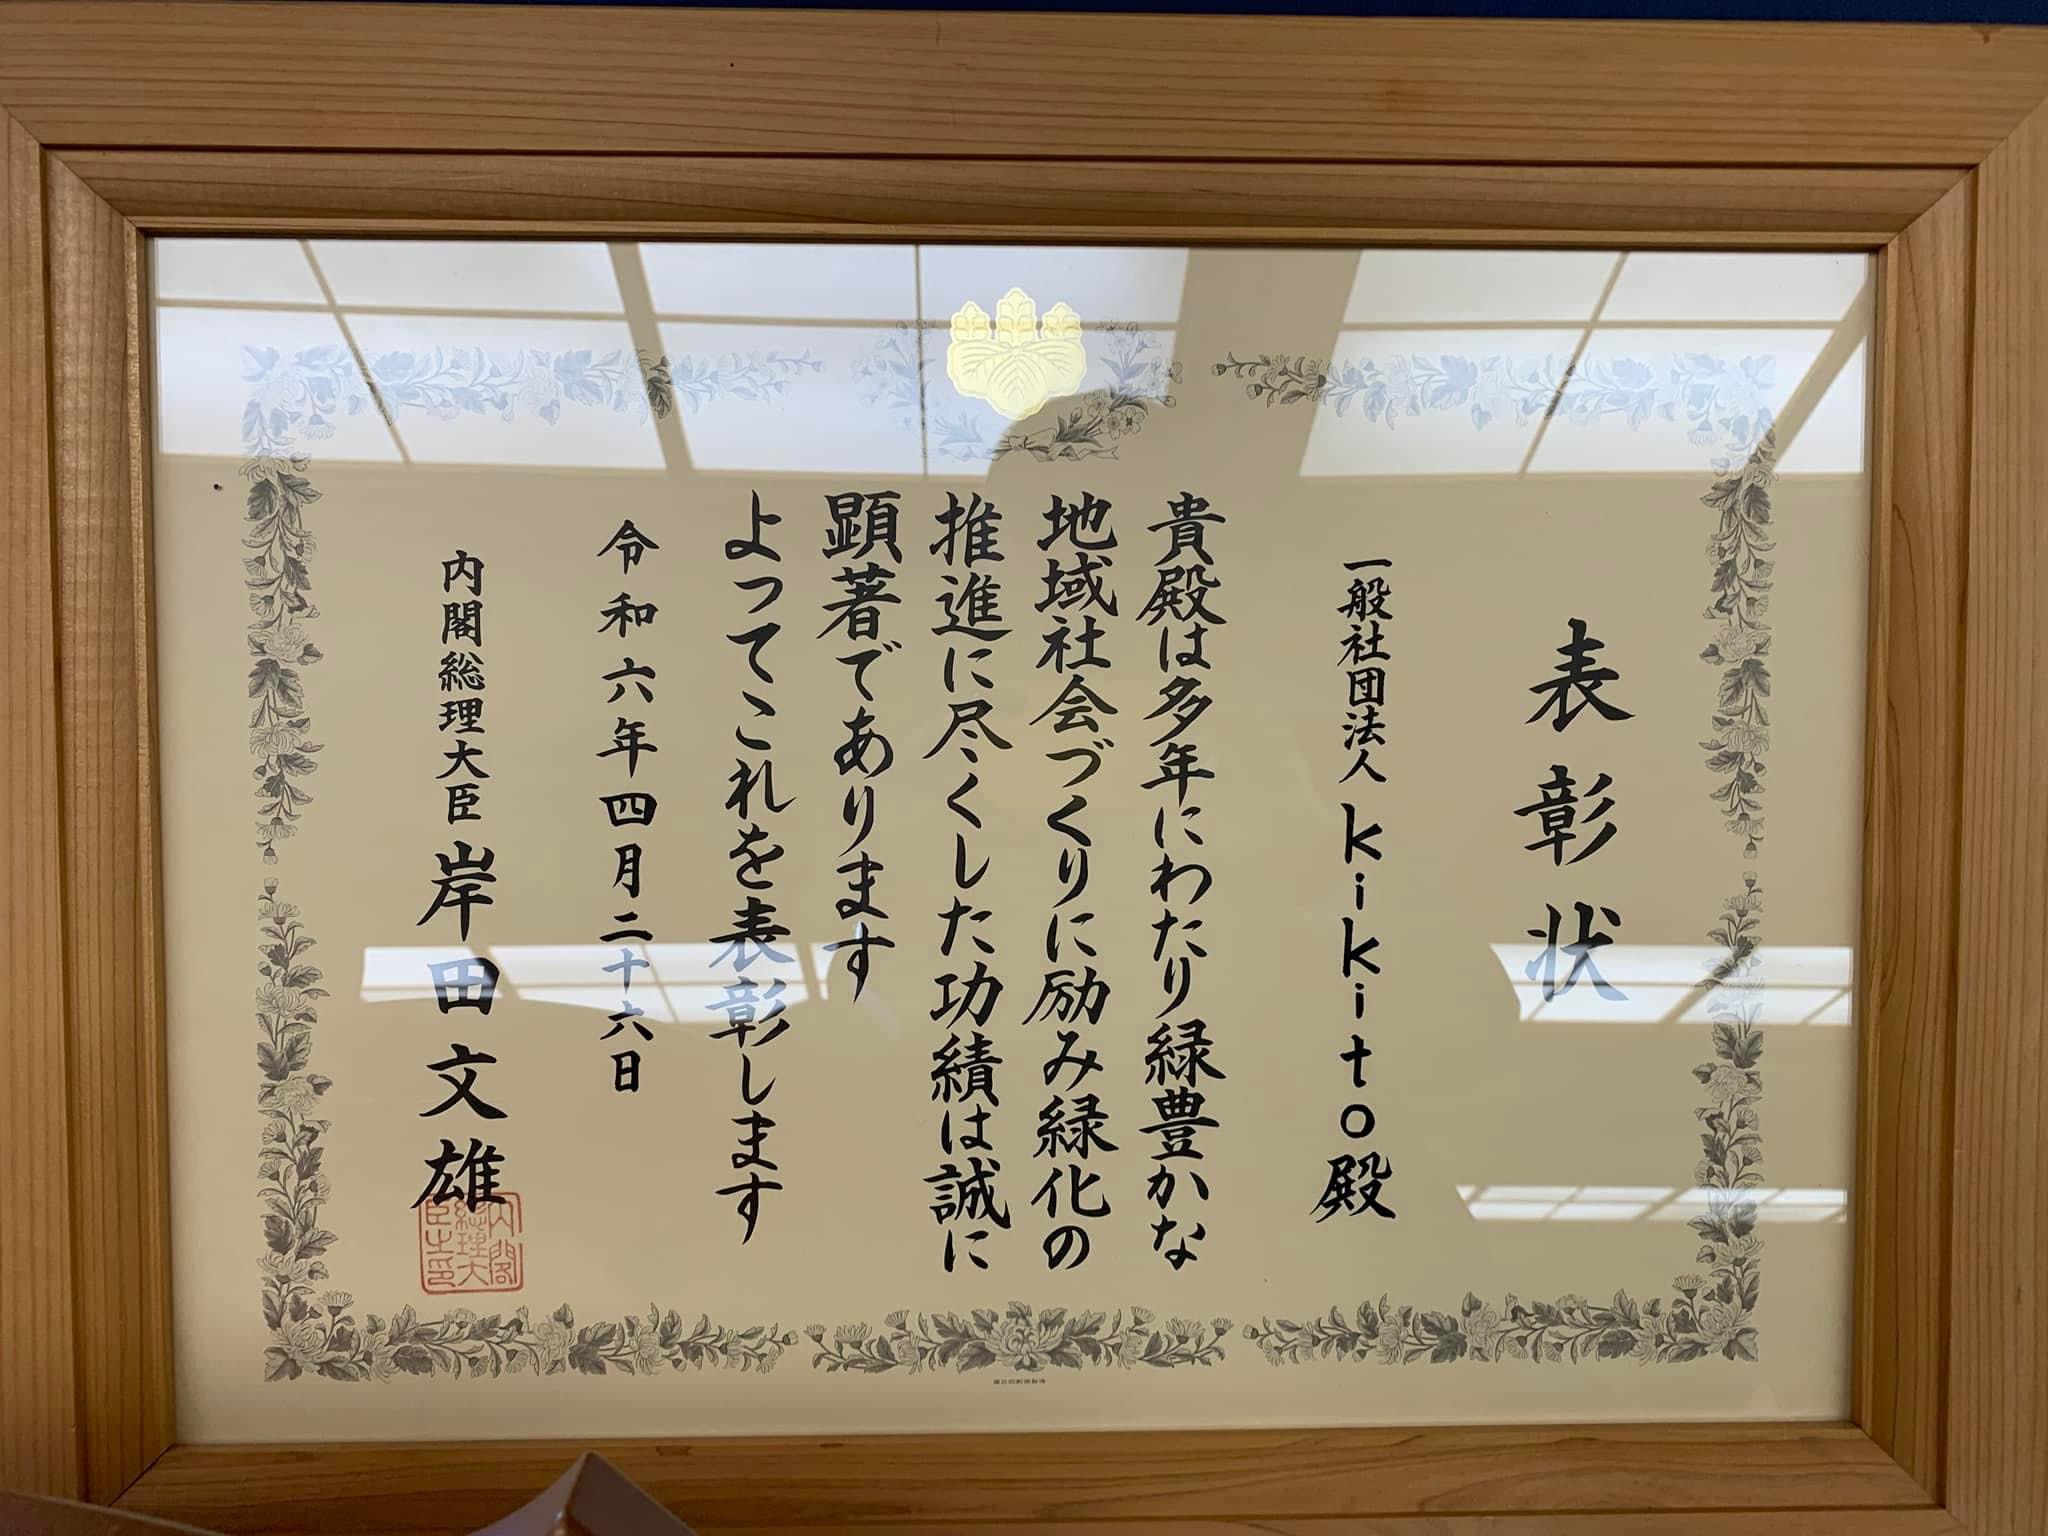 表彰状
一般社団法人kikito殿
貴殿は多年にわたり緑豊かな
地域社会づくりに励み緑化の
推進に尽くした功績は誠に
顕著であります
よってこれを表彰します
令和六年四月二十六日
内閣総理大臣 岸田文雄
内閣
総理大
臣之印